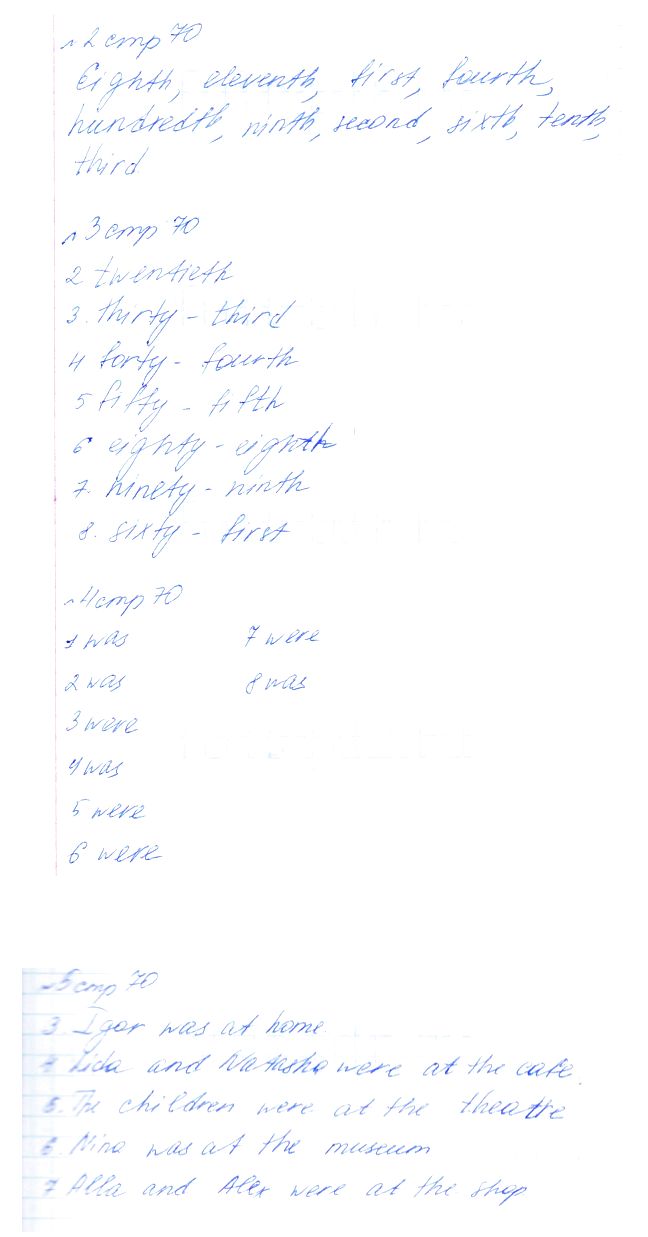 №2 стр 70
Eighth, eleventh, first, fourth,
hundredth, ninth, second, sixth, tenth,
third
№3 стр 70
2 twentieth
3. thirty - third
4 forty - fourth
5 fifty - fifth
6 eighty - eighth
7. ninety - ninth
8. sixty - first
№4 стр 70
1 was 7 were
2 was 8 was
3 were
4 was
5 were
6 were
№5 стр 70
3. Igor was at home
4 Lida and Natasha were at the cafe.
5. The children were at the theatre
6. Nina was at the museum
7 Alla and Alex were at the shop